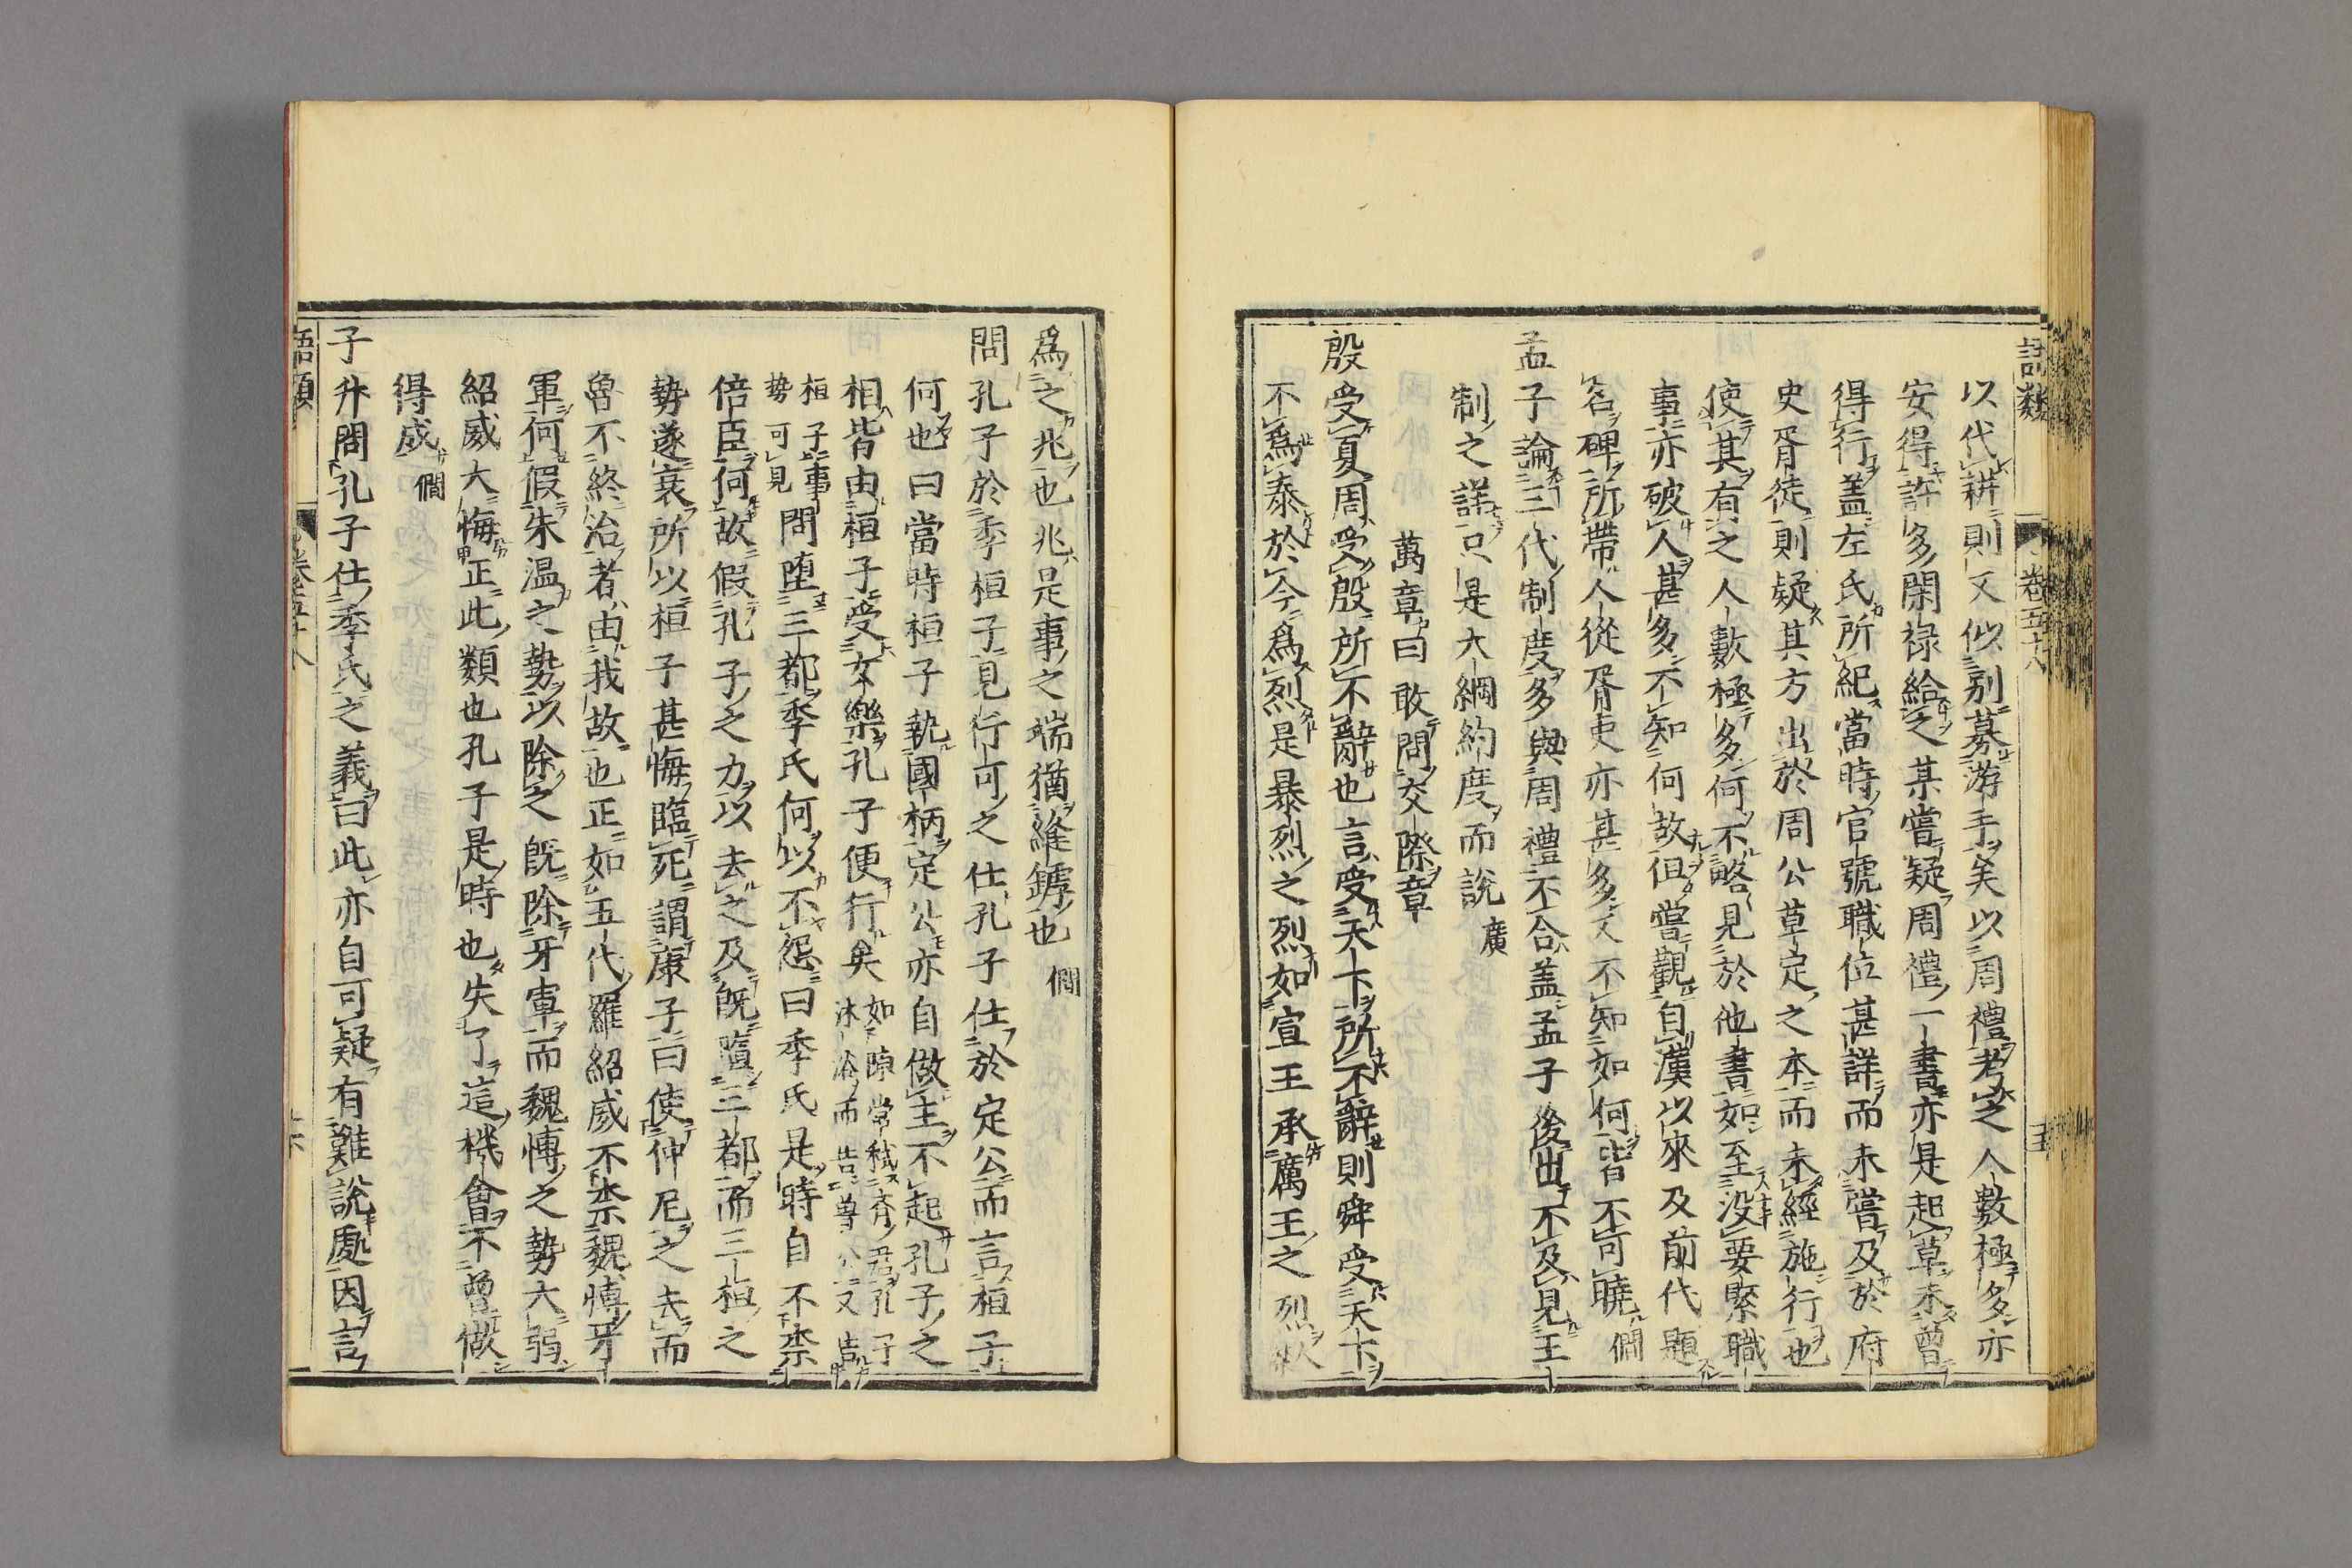 語類 卷五十八 十五
以代耕則又似別募游手矣以周禮考之人數極多亦
安得許多閑祿給之某嘗疑周禮一書亦是起草未曾
得行蓋左氏所紀當時官號職位甚詳而未嘗及於府
史胥徒則疑其方出於周公草定之本而未經施行也
使其有之人數極多何不略見於他書如至没要緊職
事亦破人甚多不知何故但嘗觀自漢以來及前代題
名碑所帶人從胥吏亦甚多又不知如何皆不可曉 僩
孟子論三代制度多與周禮不合蓋孟子後出不及見王
制之詳只是大綱約度而說 廣
萬章曰敢問交際章
殷受夏周受殷所不辭也言受天下所不辭則舜受天下
不爲泰於今爲烈是暴烈之烈如宣王承厲王之烈
爲之兆也兆是事之端猶縫罅也 僩
問孔子於季桓子見行可之仕孔子仕於定公而言桓子
何也曰當時桓子執國柄定公亦自做主不起孔子之
相皆由桓子受女樂孔子便行矣 如陳常弒齊君孔子沐浴而告魯公又告
桓子事勢可見 問墮三都季氏何以不怨曰季氏是時自不柰
倍臣何故假孔子之力以去之及既墮三都而三桓之
勢遂衰所以桓子甚悔臨死謂康子曰使仲尼之去而
魯不終治者由我故也正如五代羅紹威不柰魏博牙
軍何假朱温之勢以除之既除牙軍而魏博之勢大弱
紹威大悔正此類也孔子是時也失了這機會不曾做
得成 僩
子升問孔子仕季氏之義曰此亦自可疑有難說處因言
語類 卷五十八 十六